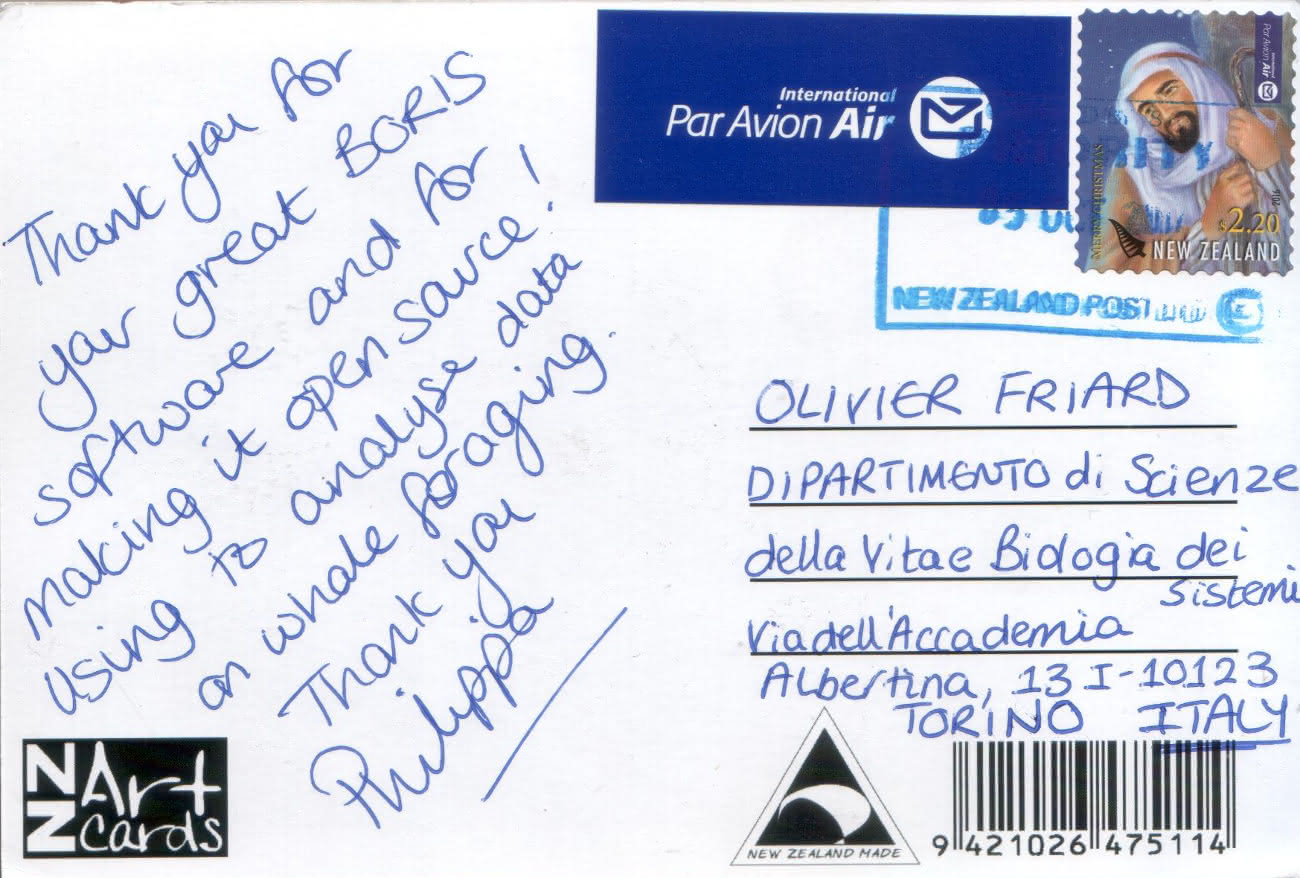 Thank you for
your great BORIS
software and for
making it open source!
using to analyse data
on whale foraging.
Thank you
Philippa
International
Par Avion Air
Par Avion Air
MERRY CHRISTMAS
2016
$2.20
NEW ZEALAND
NEW ZEALAND POST
OLIVIER FRIARD
DIPARTIMENTO di Scienze
della Vita e Biologia dei
Sistemi
Via dell'Accademia
Albertina, 13 I-10123
TORINO ITALY
NZ Art
cards
NEW ZEALAND MADE
9 421026 475114